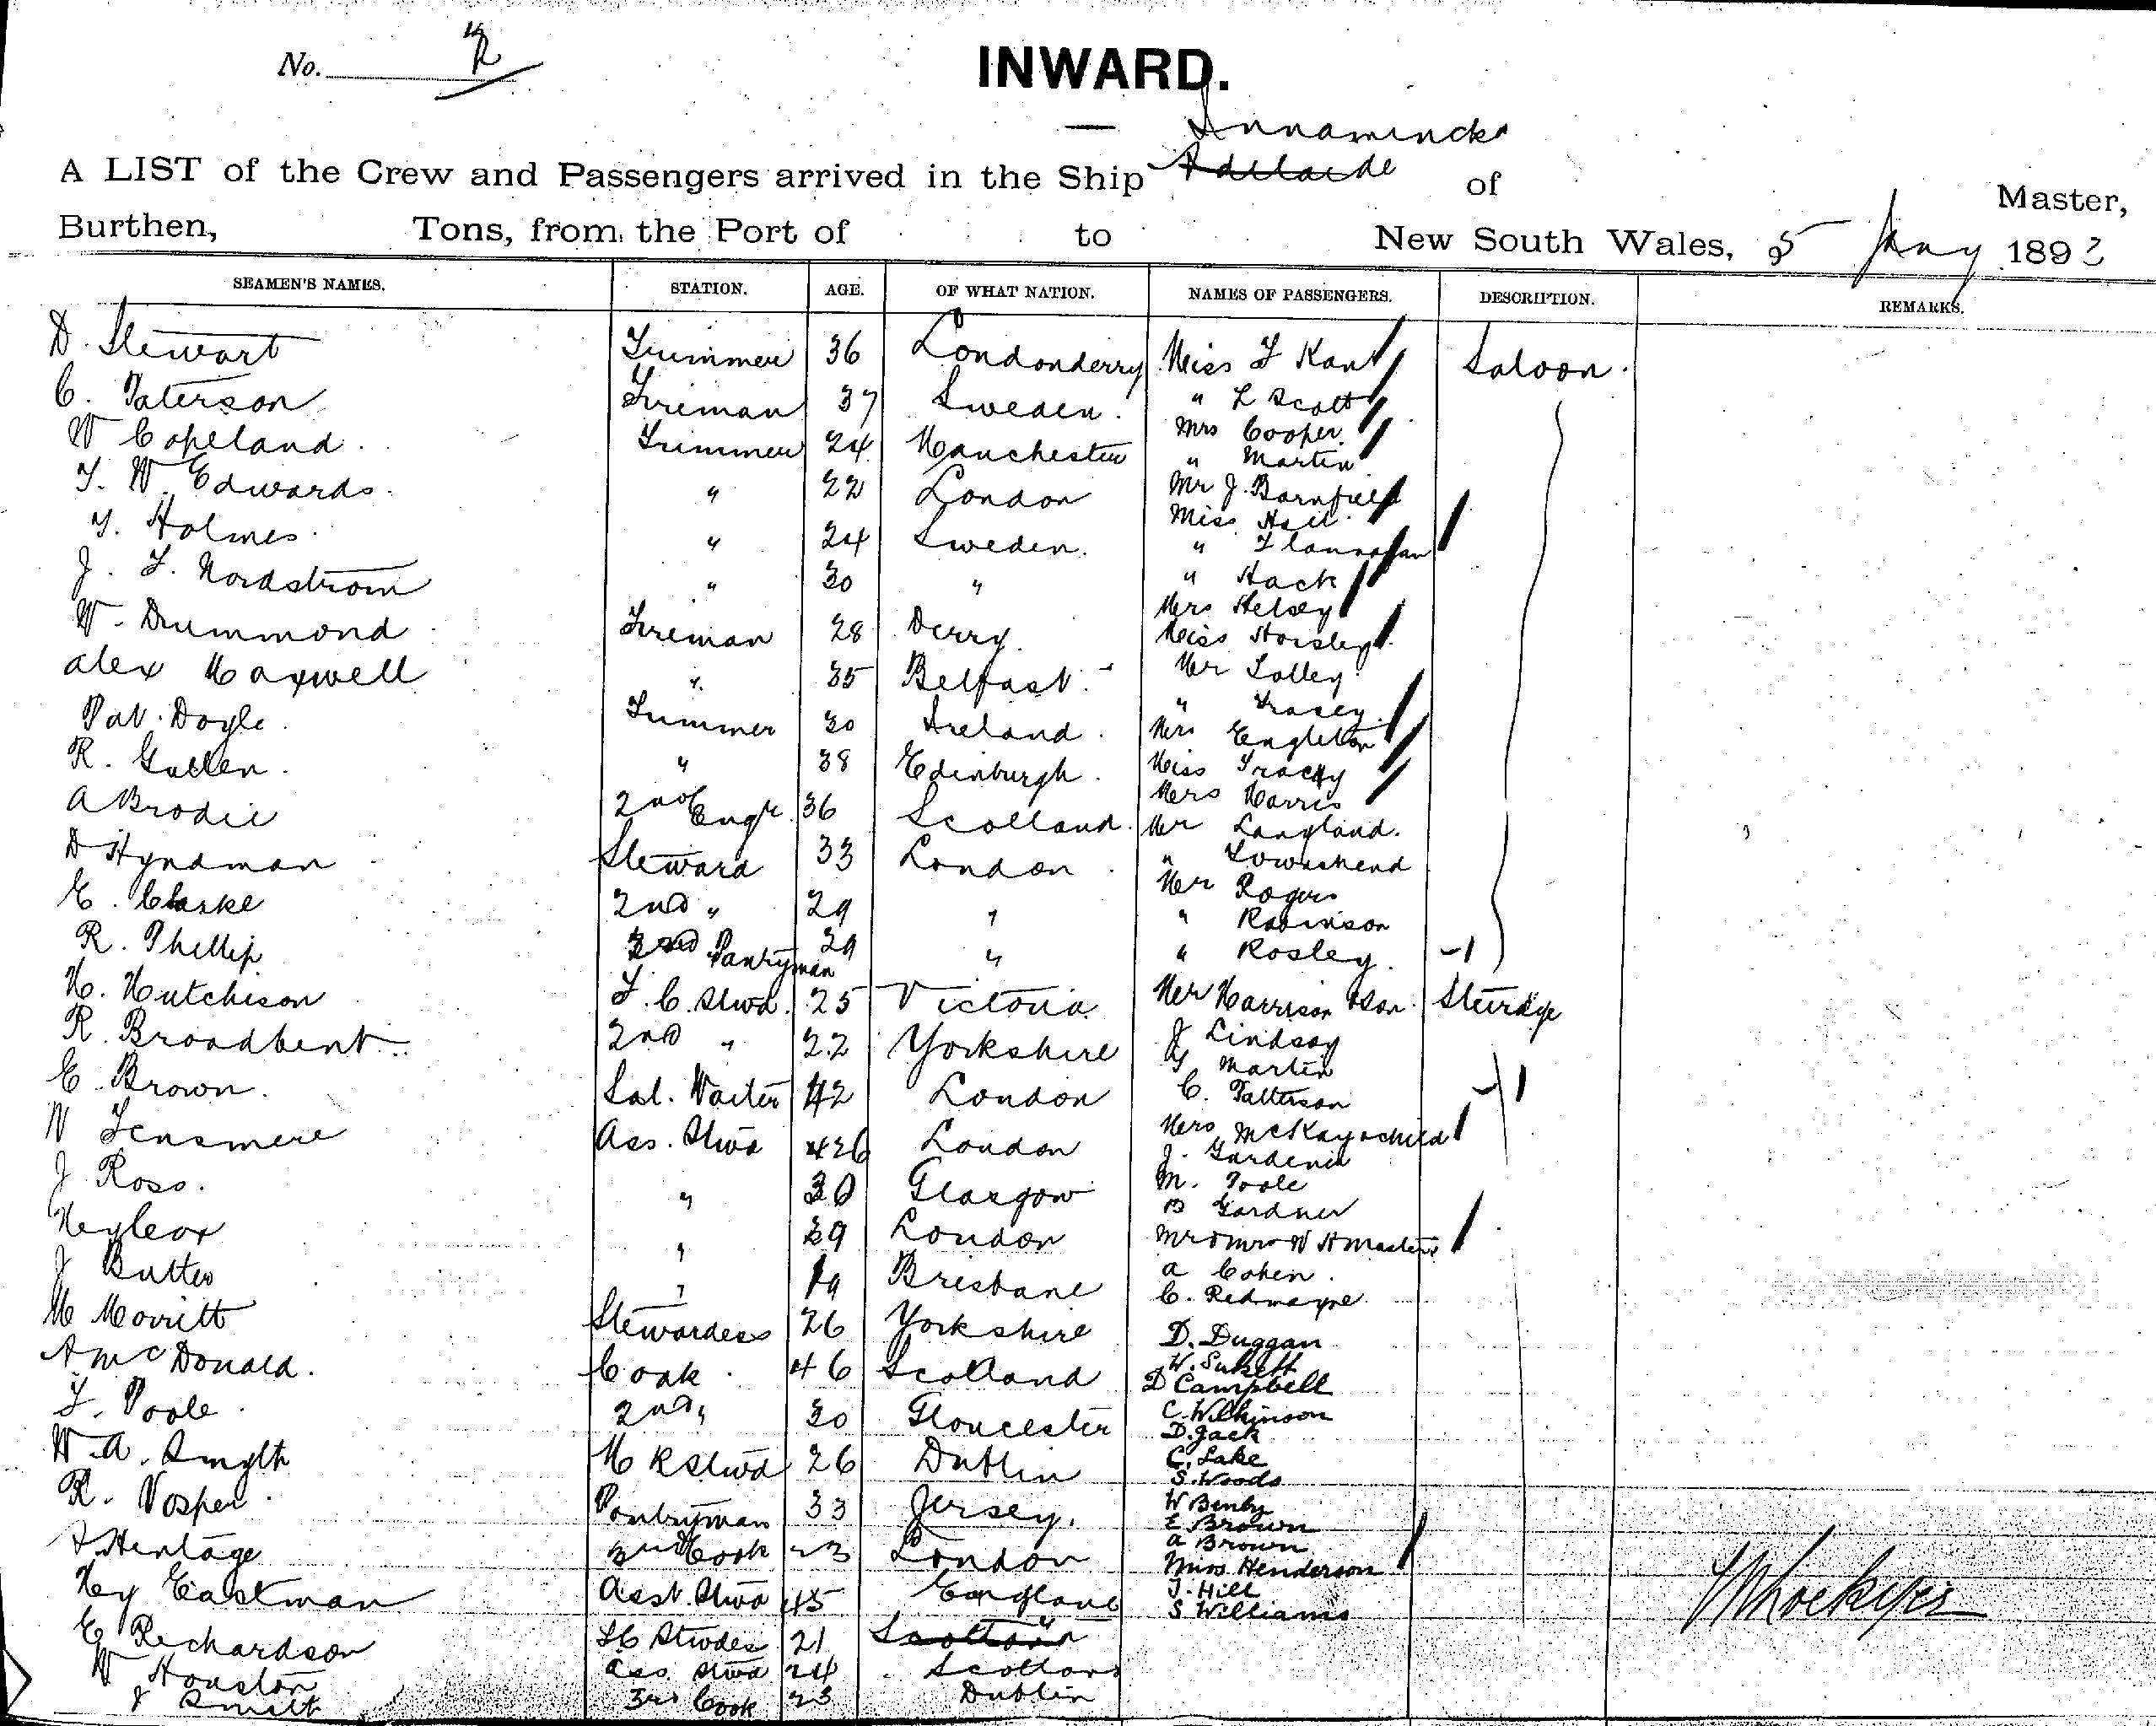 No. 2
INWARD.
Innamincka
A LIST of the Crew and Passengers arrived in the Ship Adelaide of Master,
Burthen, Tons, from the Port of to New South Wales, 5 Jany 1893
SEAMEN'S NAMES. STATION. AGE. OF WHAT NATION. NAMES OF PASSENGERS. DESCRIPTION. REMARKS.
D. Stewart Trimmer 36 Londonderry Miss F Kant Saloon.
C. Paterson Fireman 37 Sweden. " L Scott
W Copeland. Trimmer 24 Manchester Mrs Cooper
" Martin
T. W. Edwards. " 22 London Mr J. Barnfield
Miss Hail
T. Holmes. " 24 Sweden. " Flannagan
J. F. Nordstrom " 30 " " Hack
Mrs Kelsey
W. Drummond Fireman 28 Derry. Miss Horsley
Alex Maxwell ". 35 Belfast. Mr Lolley
Pat. Doyle. Trimmer 30 Ireland. " Tracey
Mrs Engleton
R. Gullen. " 38 Edinburgh. Miss Tracey
Mrs Harris
A Brodie 2nd Engr. 36 Scotland. Mr Langland.
D Hyndman Steward 33 London. " Townshend
Mr Rogers
E. Clarke 2nd " 29 " " Robinson
R. Phillip 3rd Pantryman 29 " " Rosley.
H. Hutchison F. C. Stwd. 25 Victoria Mr Harrison & Son. Steerage
R. Broadbent. 2nd " 22 Yorkshire J Lindsay
G Martin
E. Brown. Sal. Waiter 42 London C. Patterson
N Tensmere Ass. Stwd 26 London Mrs McKay & child
J. Gardener
J Ross. " 30 Glasgow M. Poole
B Gardner
Hy Leox " 29 London Mr & Mrs W H Masters
J Butter " 19 Brisbane A Cohen.
C. Redmayne.
M Morritt Stewardess 26 Yorkshire D. Duggan
A McDonald. Cook. 46 Scotland W. Sukett
D Campbell
F. Poole. 2nd " 30 Gloucester C. Wilkinson
D. Jack
W. A. Smyth M R Stwd 26 Dublin C. Lake
S. Woods
R. Vosper. Pantryman 33 Jersey. W Benby
E Brown
Hentage 3rd Cook 23 London A Brown
Miss Henderson
Hy Eastman Asst. Stwd 45 England J. Hill
S Williams
E Richardson SC Stwdes 21 Scotland "
W Houston Ass Stwd 24 Scotland
J Smilt 3rd Cook 23 Dublin